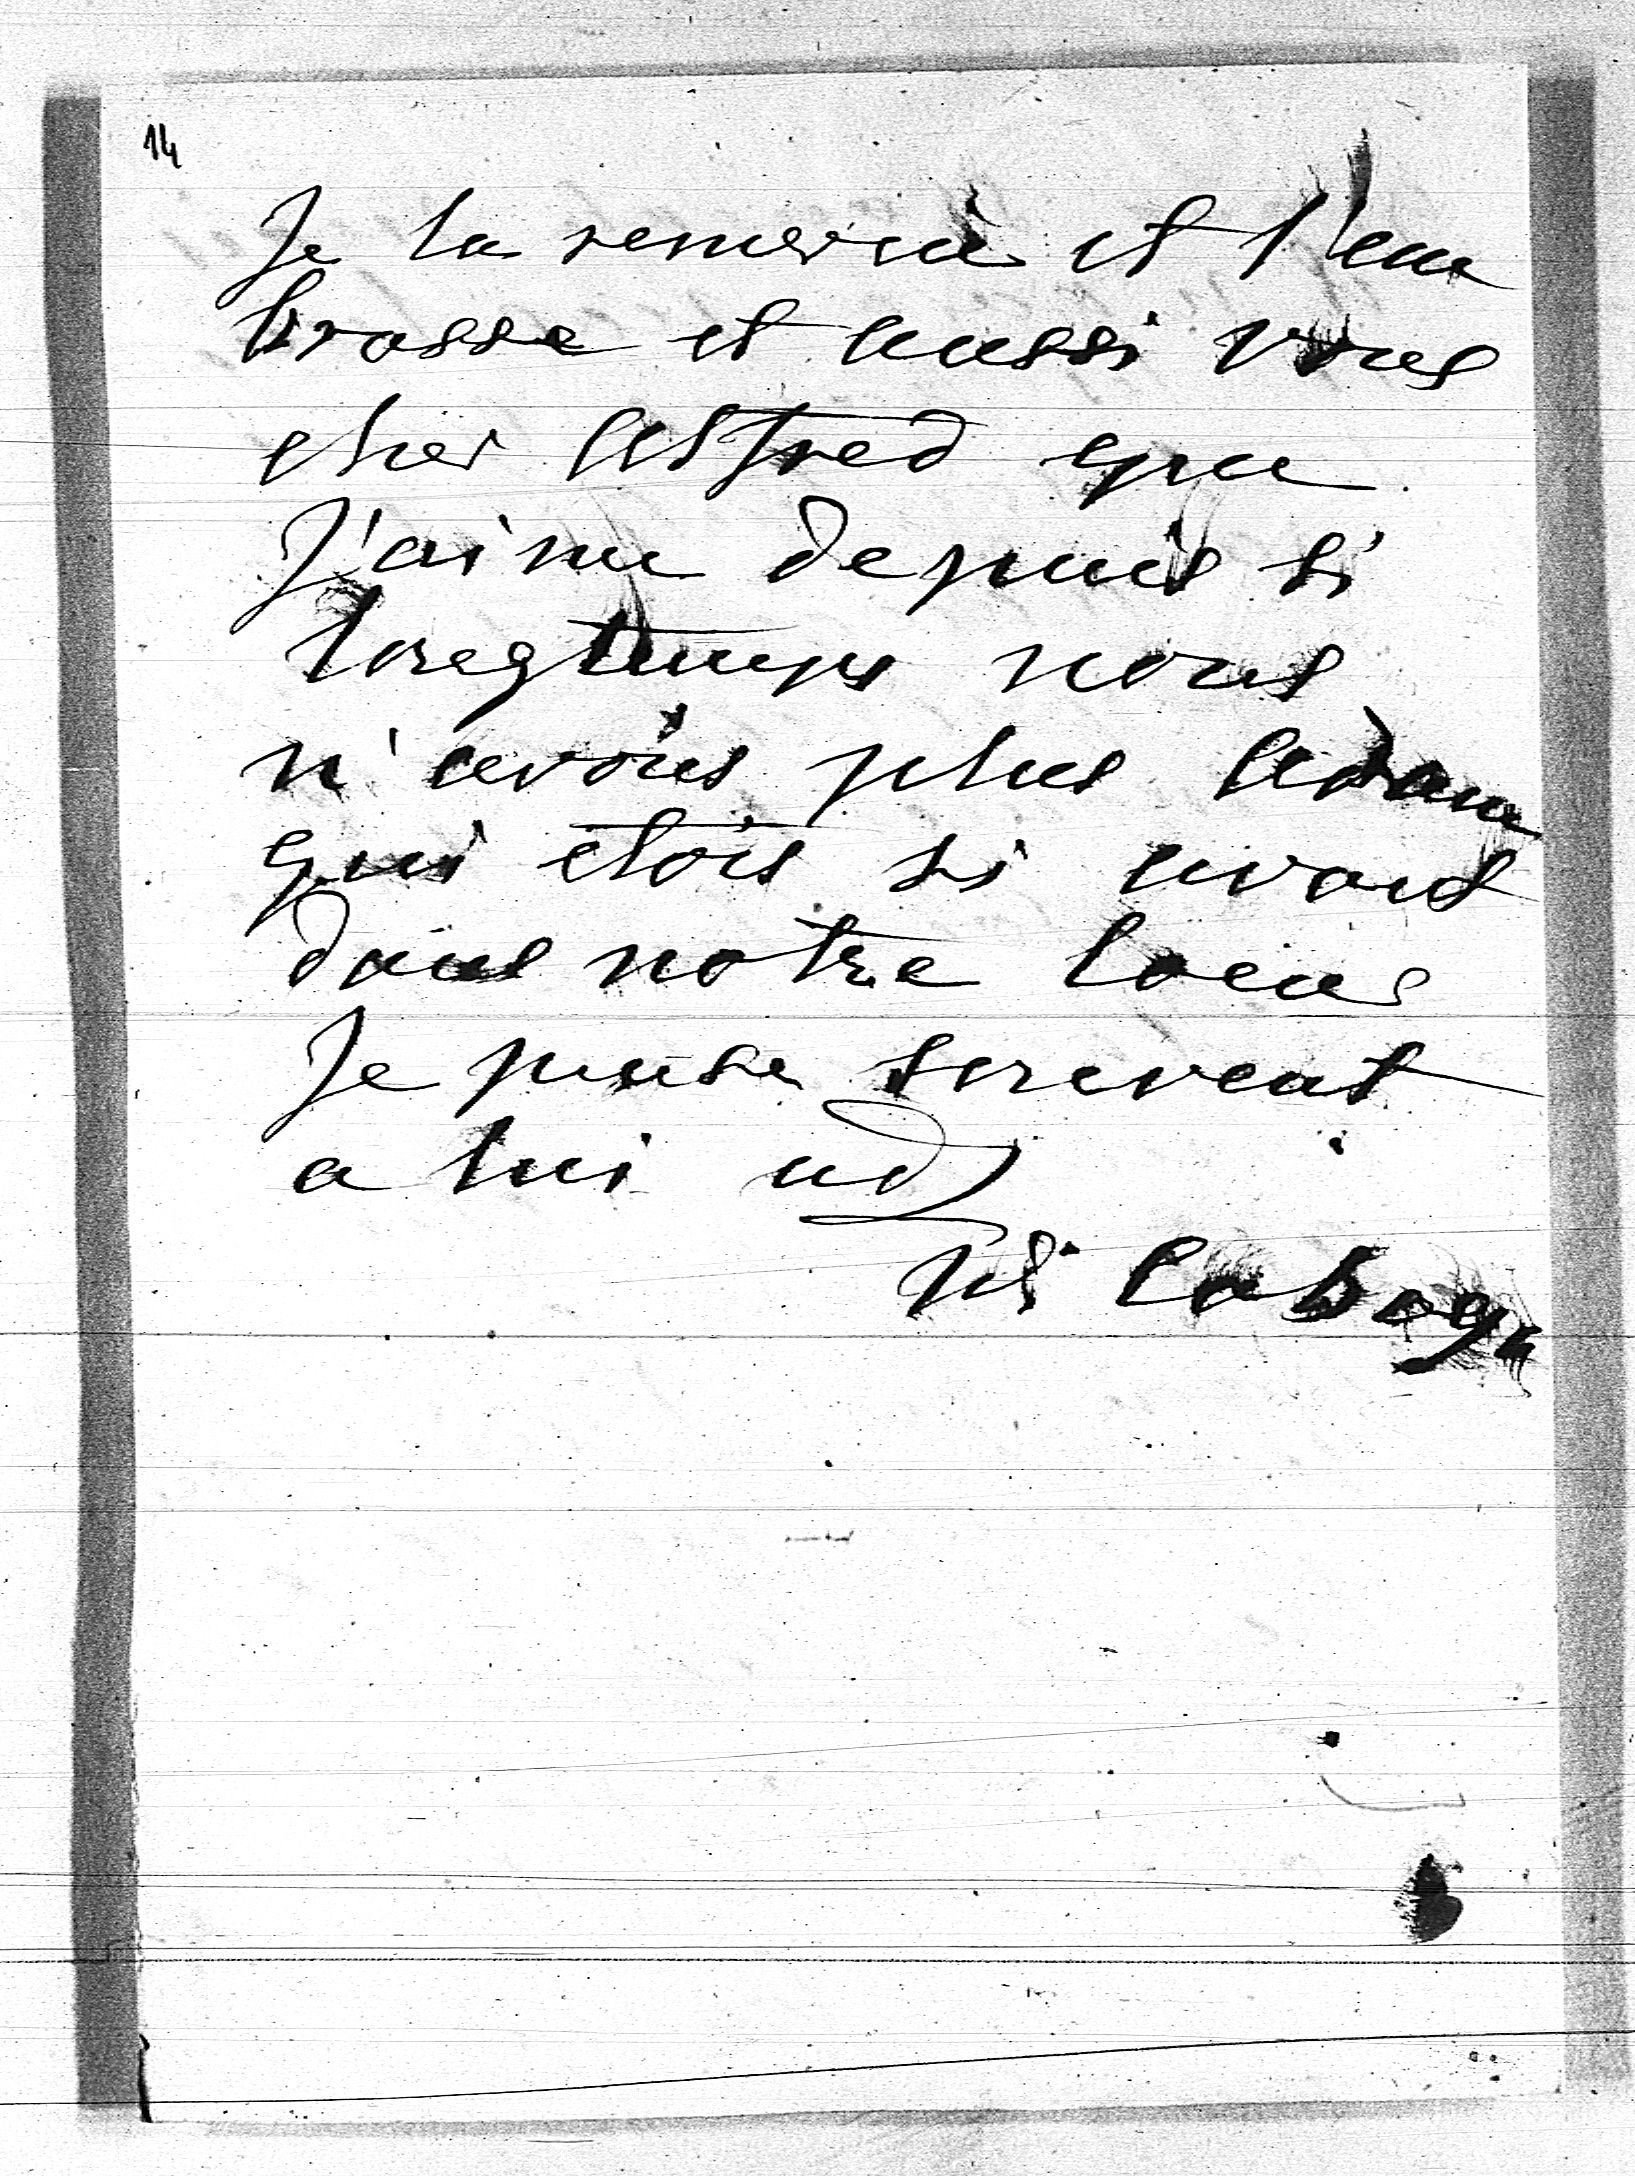 14
Je la remercie et l'em
brasse et aussi vous
cher Alfred que
J'aime depuis si
longtemps nous
n'avons plus Adam
qui etois si avant
dans notre coeur
Je pense souvent
a lui